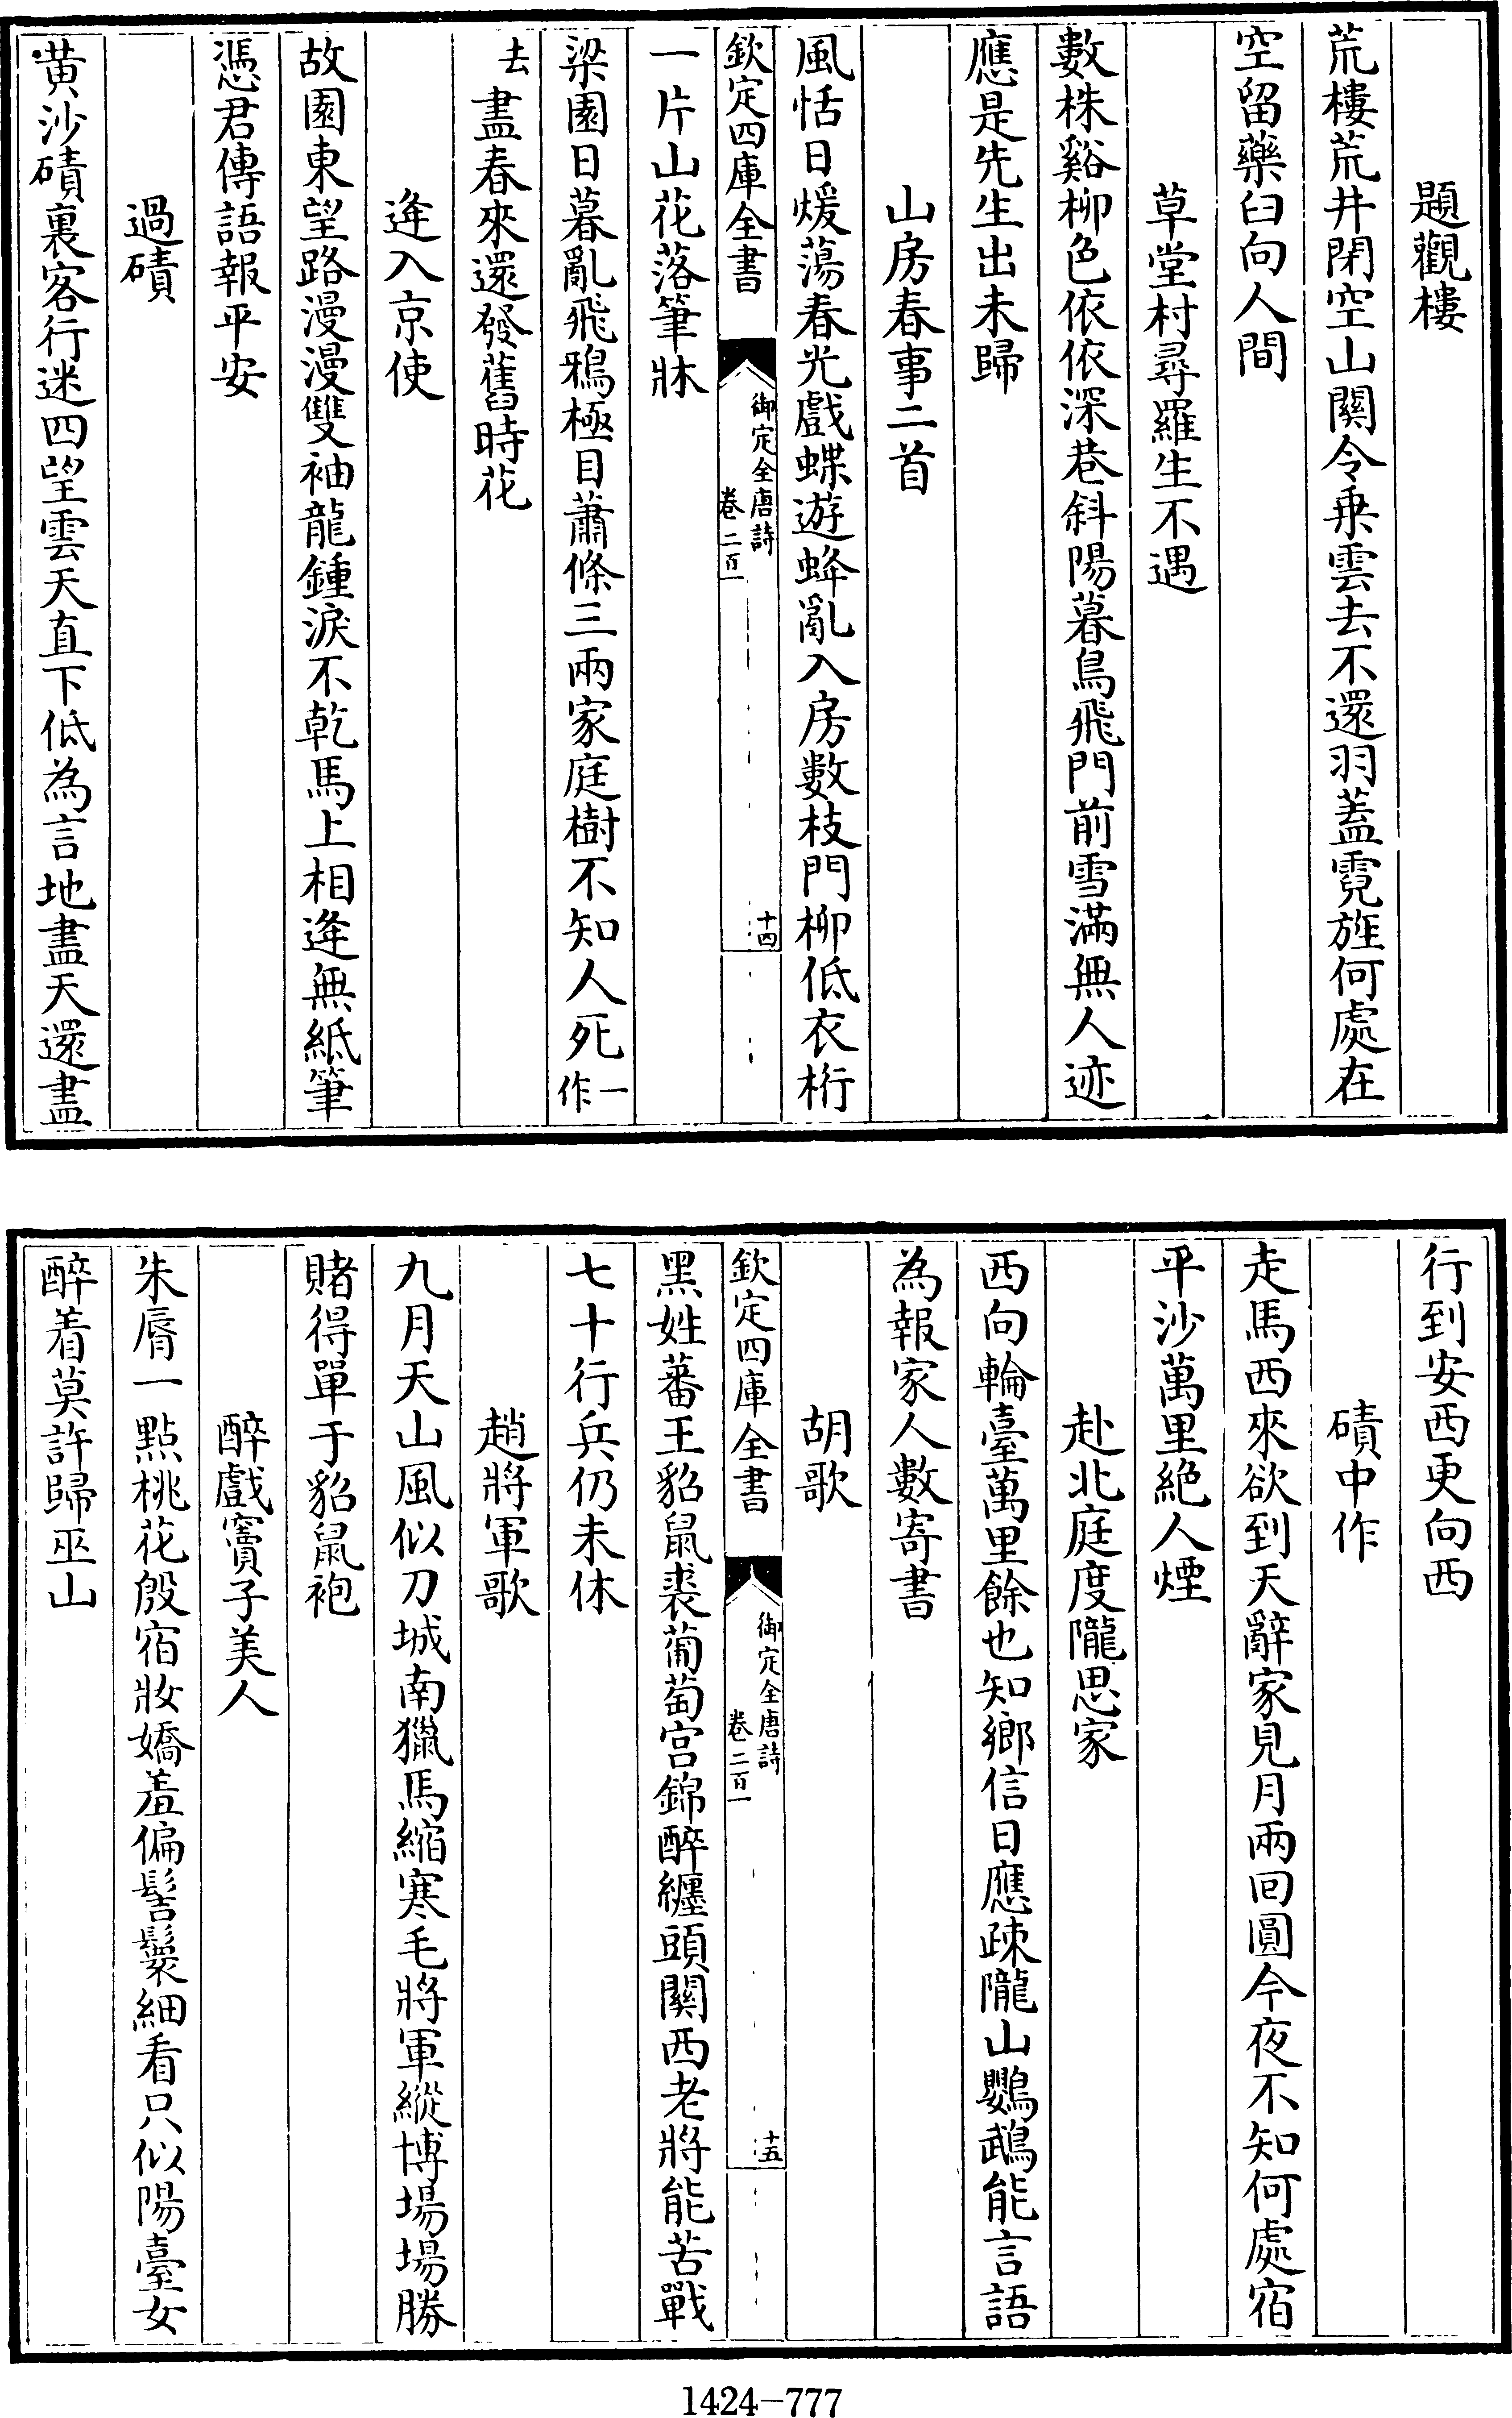 題觀樓
荒樓荒井閉空山關令乗雲去不還羽蓋霓旌何處在
空留藥臼向人間
草堂村尋羅生不遇
數株谿柳色依依深巷斜陽暮鳥飛門前雪滿無人迹
應是先生出未歸
山房春事二首
風恬日煖蕩春光戲蝶遊蜂亂入房數枝門柳低衣桁
欽定四庫全書
御定全唐詩
卷二百一
十四
一片山花落筆牀
梁園日暮亂飛鴉極目蕭條三兩家庭樹不知人死一作
去盡春來還發舊時花
逄入京使
故園東望路漫漫雙袖龍鍾淚不乾馬上相逄無紙筆
憑君傳語報平安
過磧
黄沙磧裏客行迷四望雲天直下低為言地盡天還盡
行到安西更向西
磧中作
走馬西來欲到天辭家見月兩回圓今夜不知何處宿
平沙萬里絶人煙
赴北庭度隴思家
西向輪臺萬里餘也知鄉信日應疎隴山鸚鵡能言語
為報家人數寄書
胡歌
欽定四庫全書
御定全唐詩
卷二百一
十五
黑姓蕃王貂鼠裘葡萄宫錦醉纏頭關西老將能苦戰
七十行兵仍未休
趙將軍歌
九月天山風似刀城南獵馬縮寒毛將軍縱博場場勝
賭得單于貂鼠袍
醉戲竇子美人
朱脣一點桃花殷宿妝嬌羞偏髻鬟細看只似陽臺女
醉着莫許歸巫山
1424-777